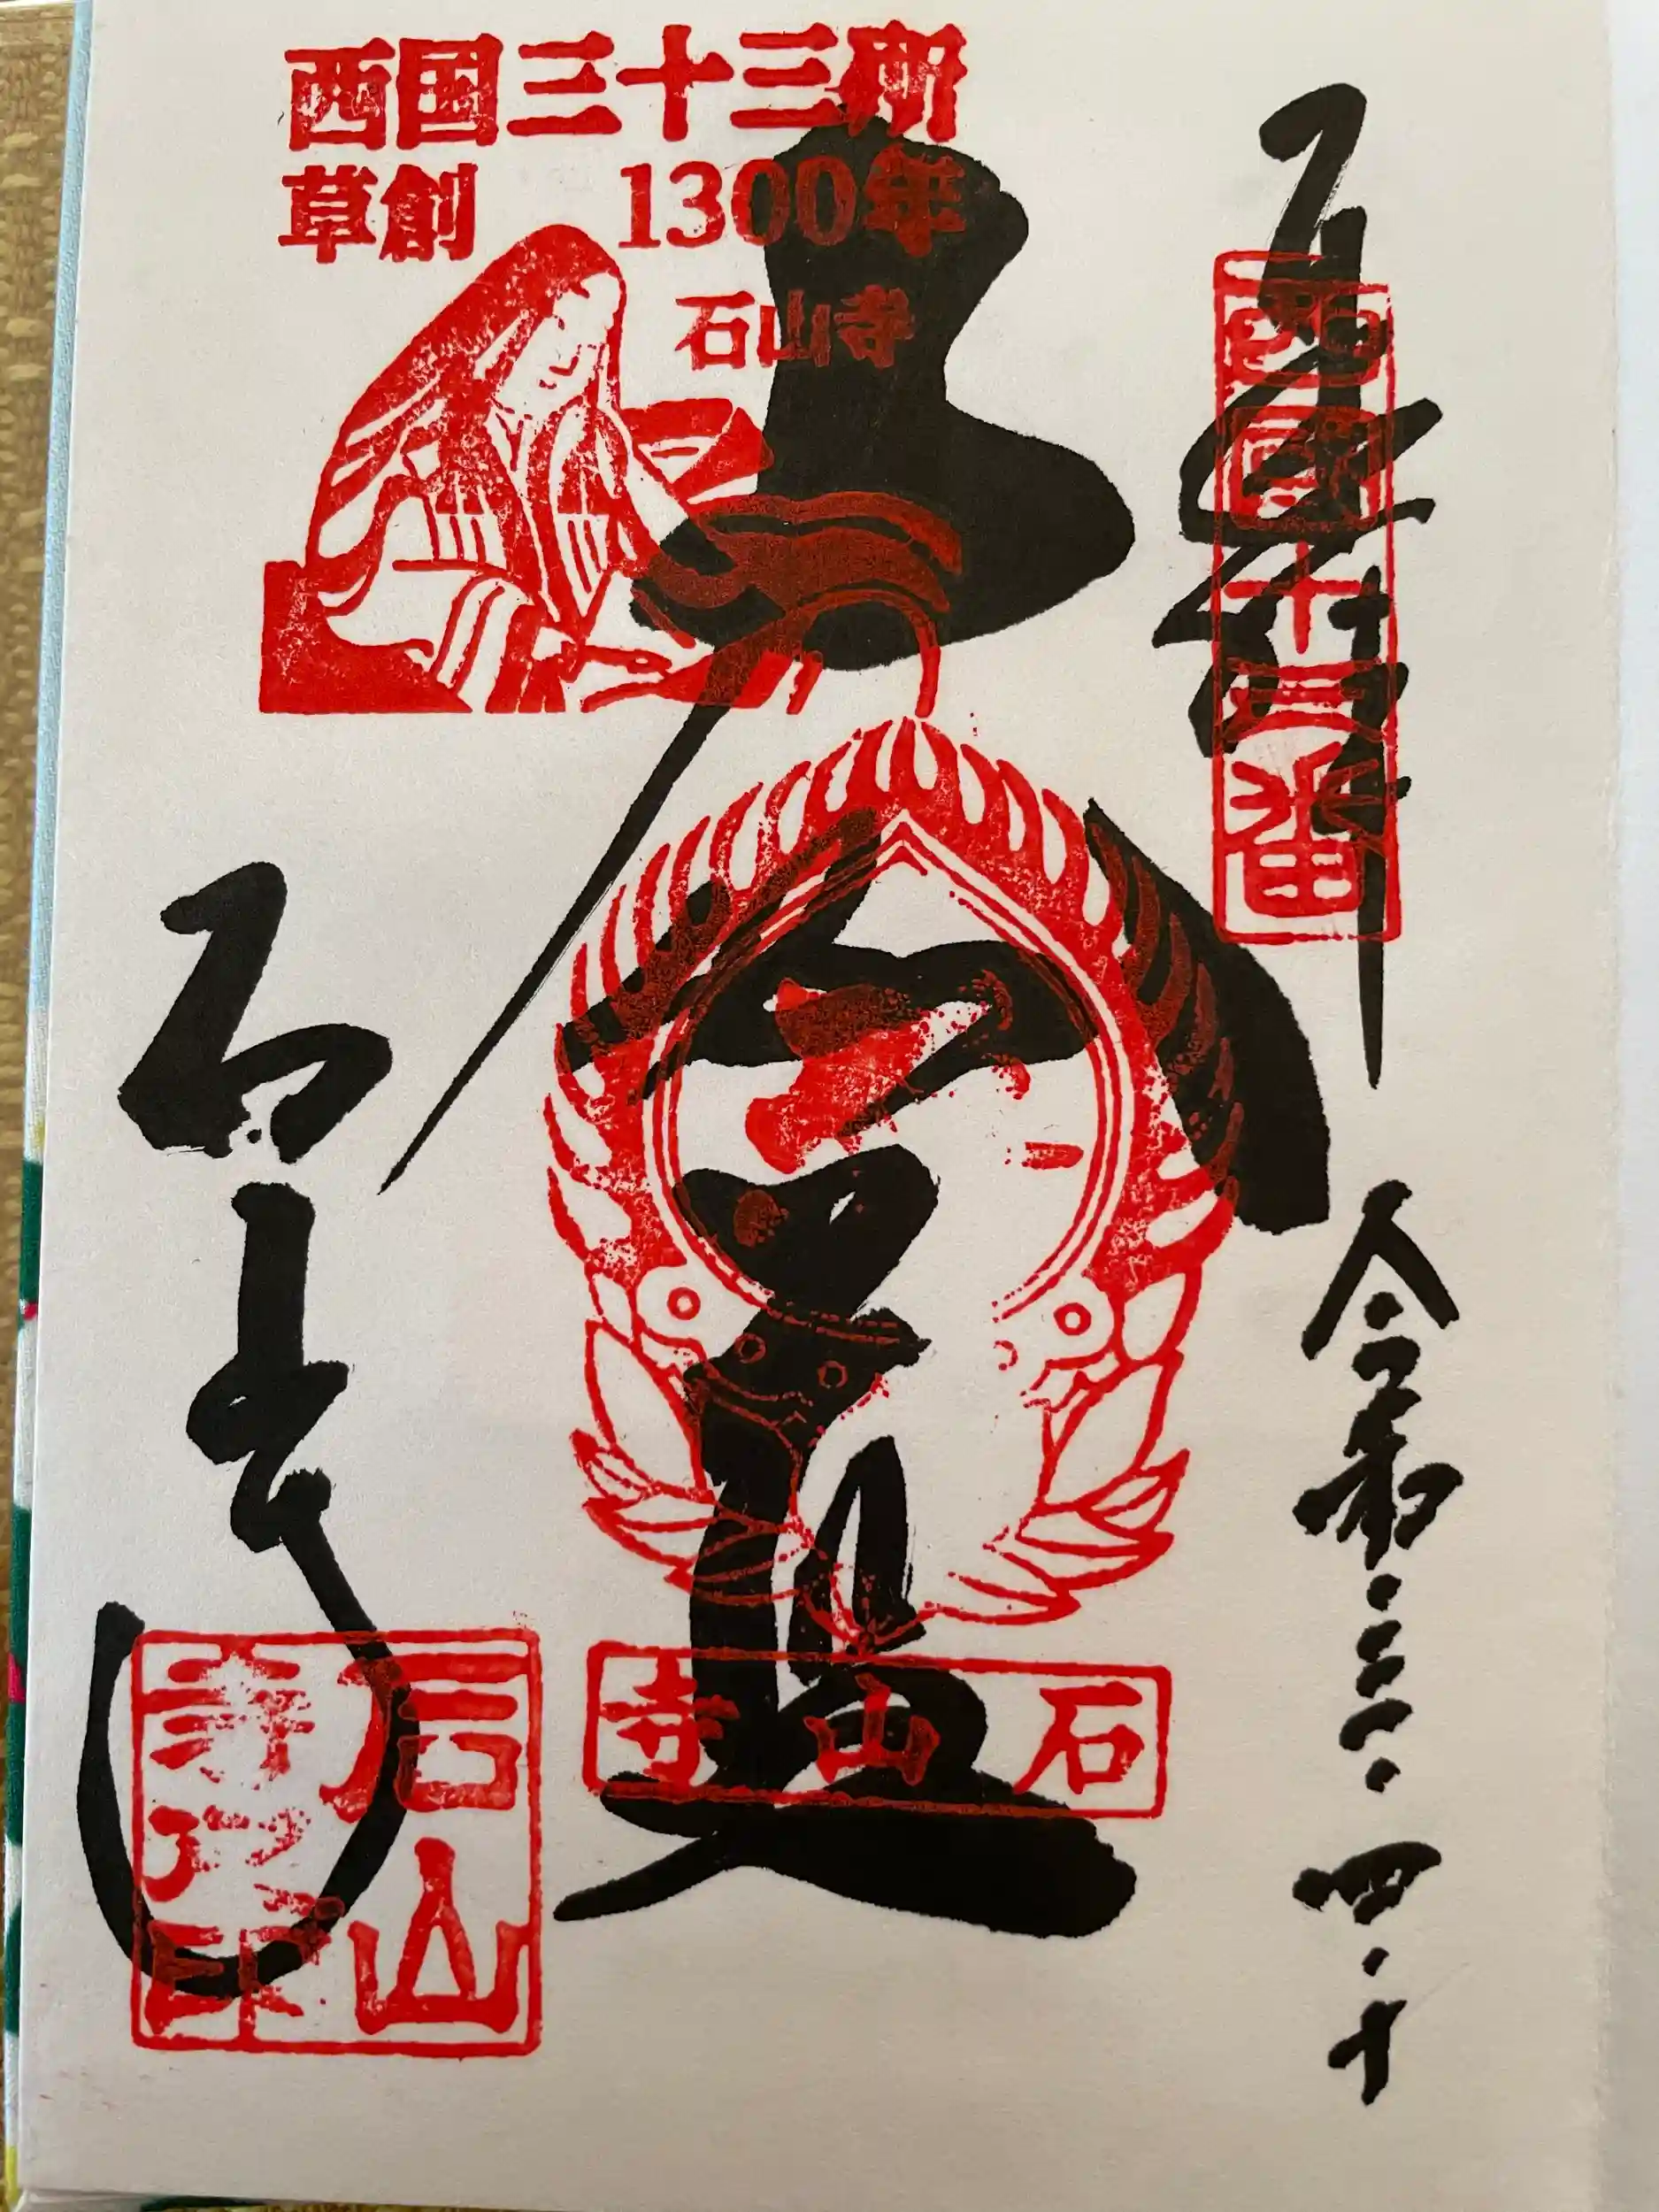 西国三十三所
草創 1300年
石山寺
奉拝
西國十三番
令和三・四・十
大伽藍
石山寺
石山寺
石山寺